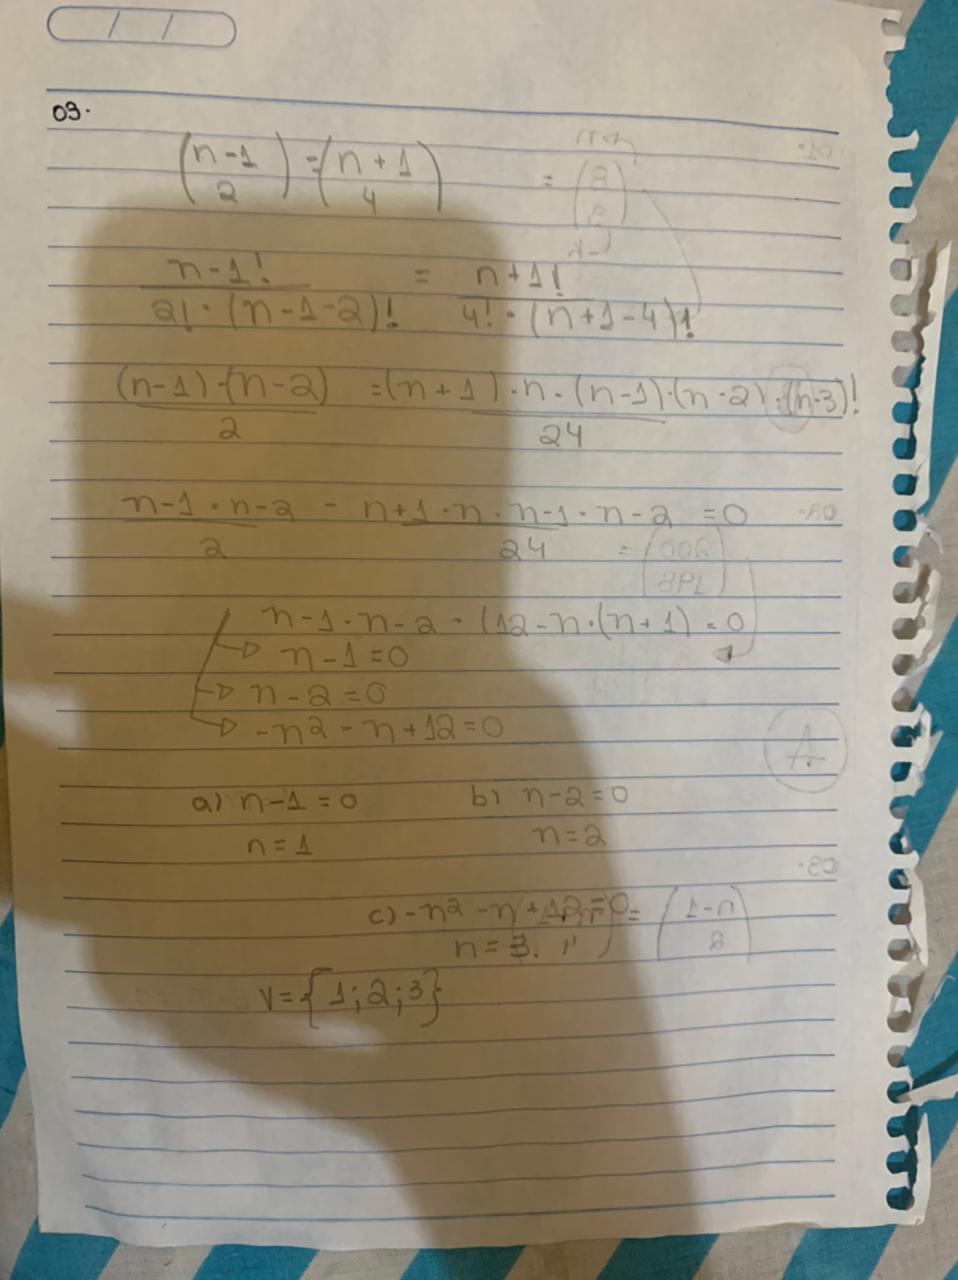 / /
03.
(n-1 2) = (n+1 4)
n-1! / 2! · (n-1-2)! = n+1! / 4! · (n+1-4)!
(n-1)·(n-2) / 2 = (n+1)·n·(n-1)·(n-2)·(n-3)! / 24
n-1·n-2 / 2 - n+1·n·n-1·n-2 / 24 = 0
n-1·n-2·(12-n·(n+1) = 0
n-1=0
n-2=0
-n2-n+12=0
a) n-1=0 b) n-2=0
n=1 n=2
c) -n2-n+12=0
n=3.
V={1;2;3}